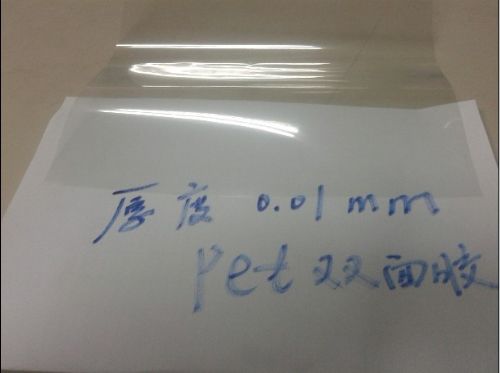 厚度 0.01mm
Pet双面胶